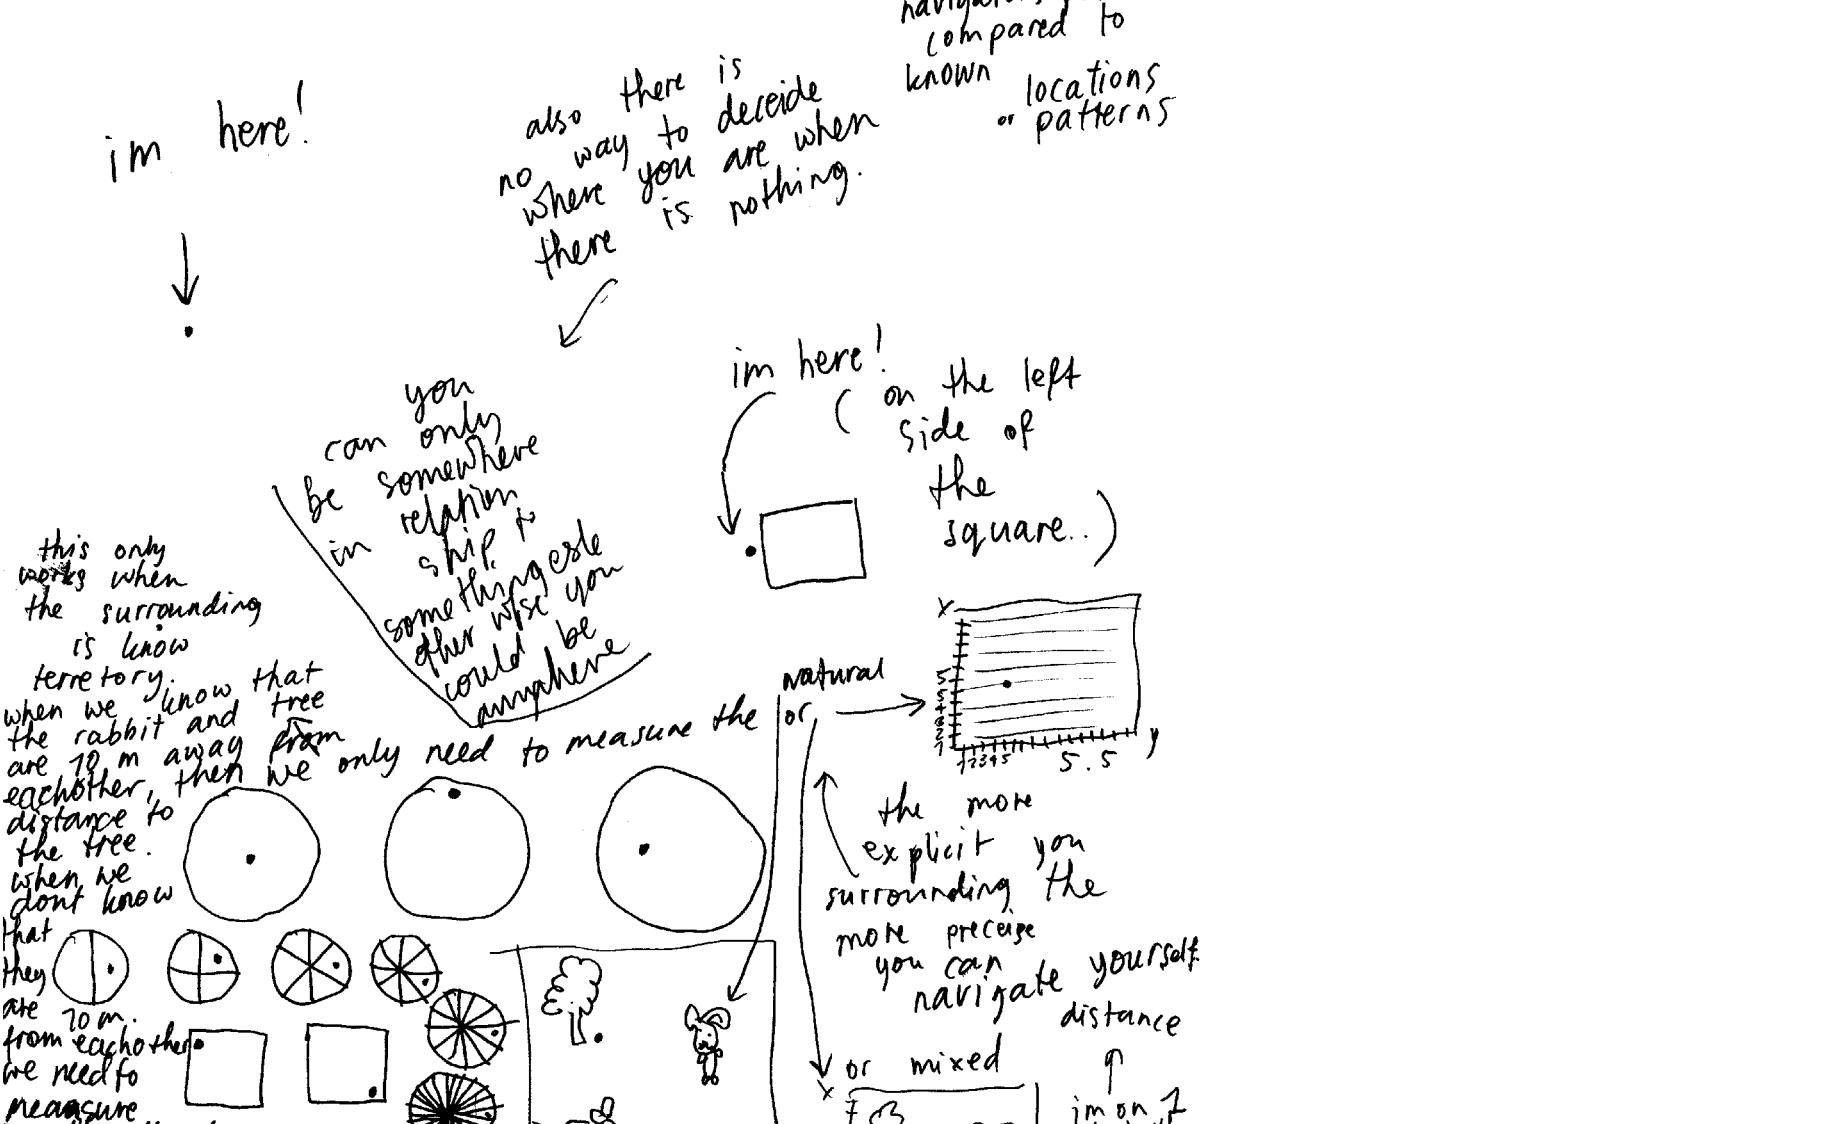 compared to
known
locations
or patterns
im here!
also there is
no way to deceide
where you are when
there is nothing.
you
can only
be somewhere
in relation
ship to
something esle
other wise you
could be
im here!
( on the left
side of
the
square..)
this only
works when
the surrounding
is know
terretory.
when we know that
the rabbit and tree
are 10 m away from
eachother, then we only need to measure the
distance to
the tree.
when we
dont know
that
they
are 10m.
from eachother
we need to
meassure
natural
or
x
y
5.5
the more
explicit you
surrounding the
more preceise
you can
navigate yourself.
distance
or mixed
x
im on 1